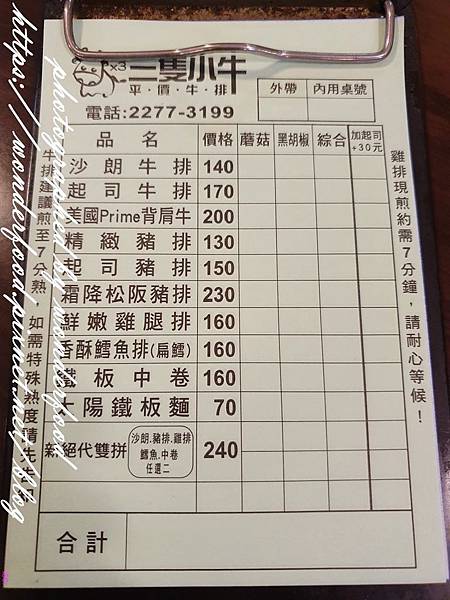 x3 三隻小牛
平·價·牛·排
電話:2277-3199
外帶 內用桌號
品名 價格 蘑菇 黑胡椒 綜合 加起司+30元
沙朗牛排 140
起司牛排 170
美國Prime背肩牛 200
精緻豬排 130
起司豬排 150
霜降松阪豬排 230
鮮嫩雞腿排 160
香酥鱈魚排(扁鱈) 160
鐵板中卷 160
太陽鐵板麵 70
新絕代雙拼 沙朗.豬排.雞排 240
鱈魚.中卷
任選二
合計
牛排建議煎至7分熟 如需特殊熟度請先
雞排現煎約需7分鐘，請耐心等候！
photography by wonderfood
https://wonderfood.pixnet.net/blog